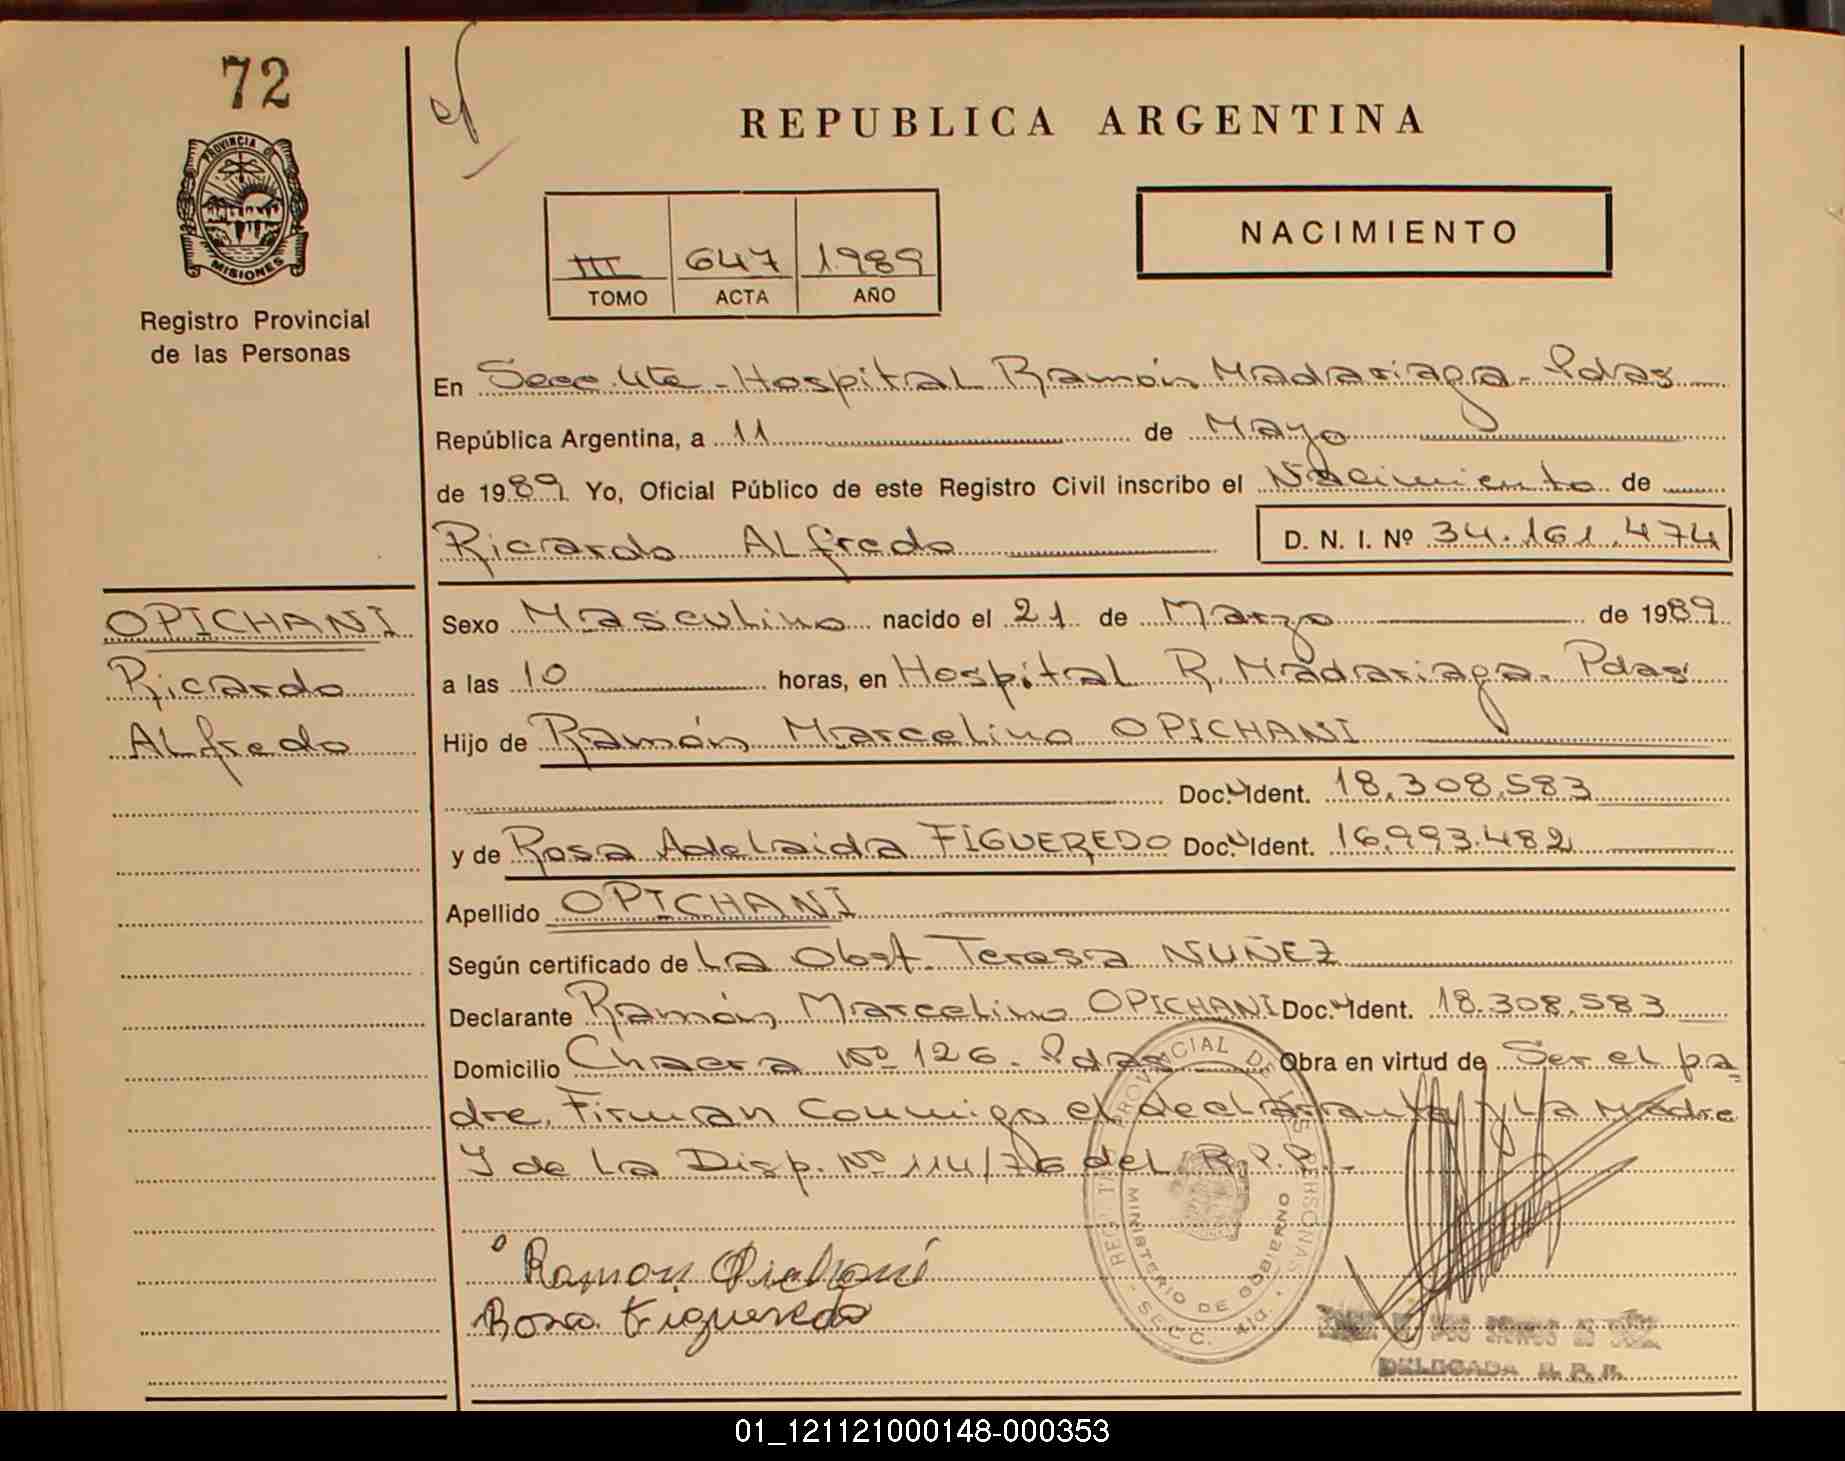 72
PROVINCIA DE
MISIONES
Registro Provincial
de las Personas
REPUBLICA ARGENTINA
NACIMIENTO
III 647 1989
TOMO ACTA AÑO
En Secc. 4ta - Hospital Ramón Madariaga - Pdas
República Argentina, a 11 de Mayo
de 1989 Yo, Oficial Público de este Registro Civil inscribo el Nacimiento de
Ricardo ALfredo D. N. I. Nº 34.161.474
OPICHANI
Ricardo
ALfredo
Sexo Masculino nacido el 21 de Marzo de 1989
a las 10 horas, en Hospital R. Madariaga. Pdas
Hijo de Ramón Marcelino OPICHANI
Doc. Ident. 18.308.583
y de Rosa Adelaida FIGUEREDO Doc. Ident. 16.993.482
Apellido OPICHANI
Según certificado de La Obst. Teresa NUÑEZ
Declarante Ramón Marcelino OPICHANI Doc. Ident. 18.308.583
Domicilio Chacra Nº 126. Pdas Obra en virtud de Ser el pa
dre. Firman Conmigo el declarante y La Madre
Y de La Disp. Nº 114/76 del R.P.P.-
Ramon Opichani
Rosa Figueredo
MINISTERIO DE GOBIERNO
SECC. 4ta.
DELEGADA R. P. P.
01_121121000148-000353